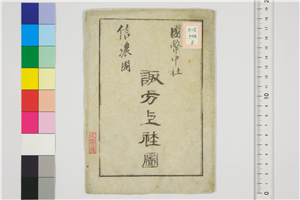 國幣中社
信濃國
諏方上社圖